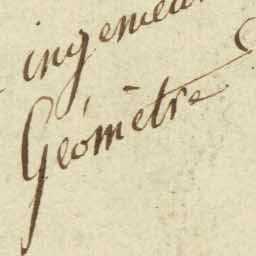 ingenieur
Géomètre